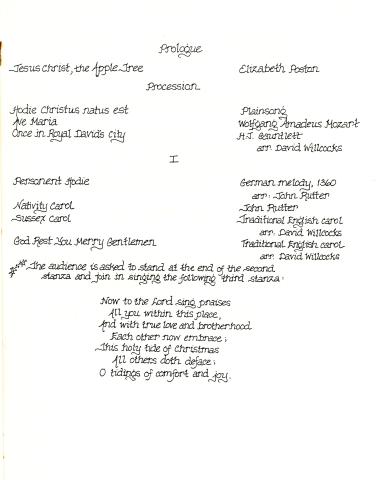 Prologue
Jesus Christ, the Apple Tree Elizabeth Poston
Procession
Hodie Christus natus est Plainsong
Ave Maria Wolfgang Amadeus Mozart
Once in Royal David's City H.J. Gauntlett
arr. David Willcocks
I
Personent Hodie German melody, 1360
arr. John Rutter
Nativity Carol John Rutter
Sussex Carol Traditional English carol
arr. David Willcocks
God Rest You Merry Gentlemen Traditional English carol
arr. David Willcocks
*** The audience is asked to stand at the end of the second
stanza and join in singing the following third stanza:
Now to the Lord sing praises
All you within this place,
And with true love and brotherhood
Each other now embrace;
This holy tide of Christmas
All others doth deface;
O tidings of comfort and joy.